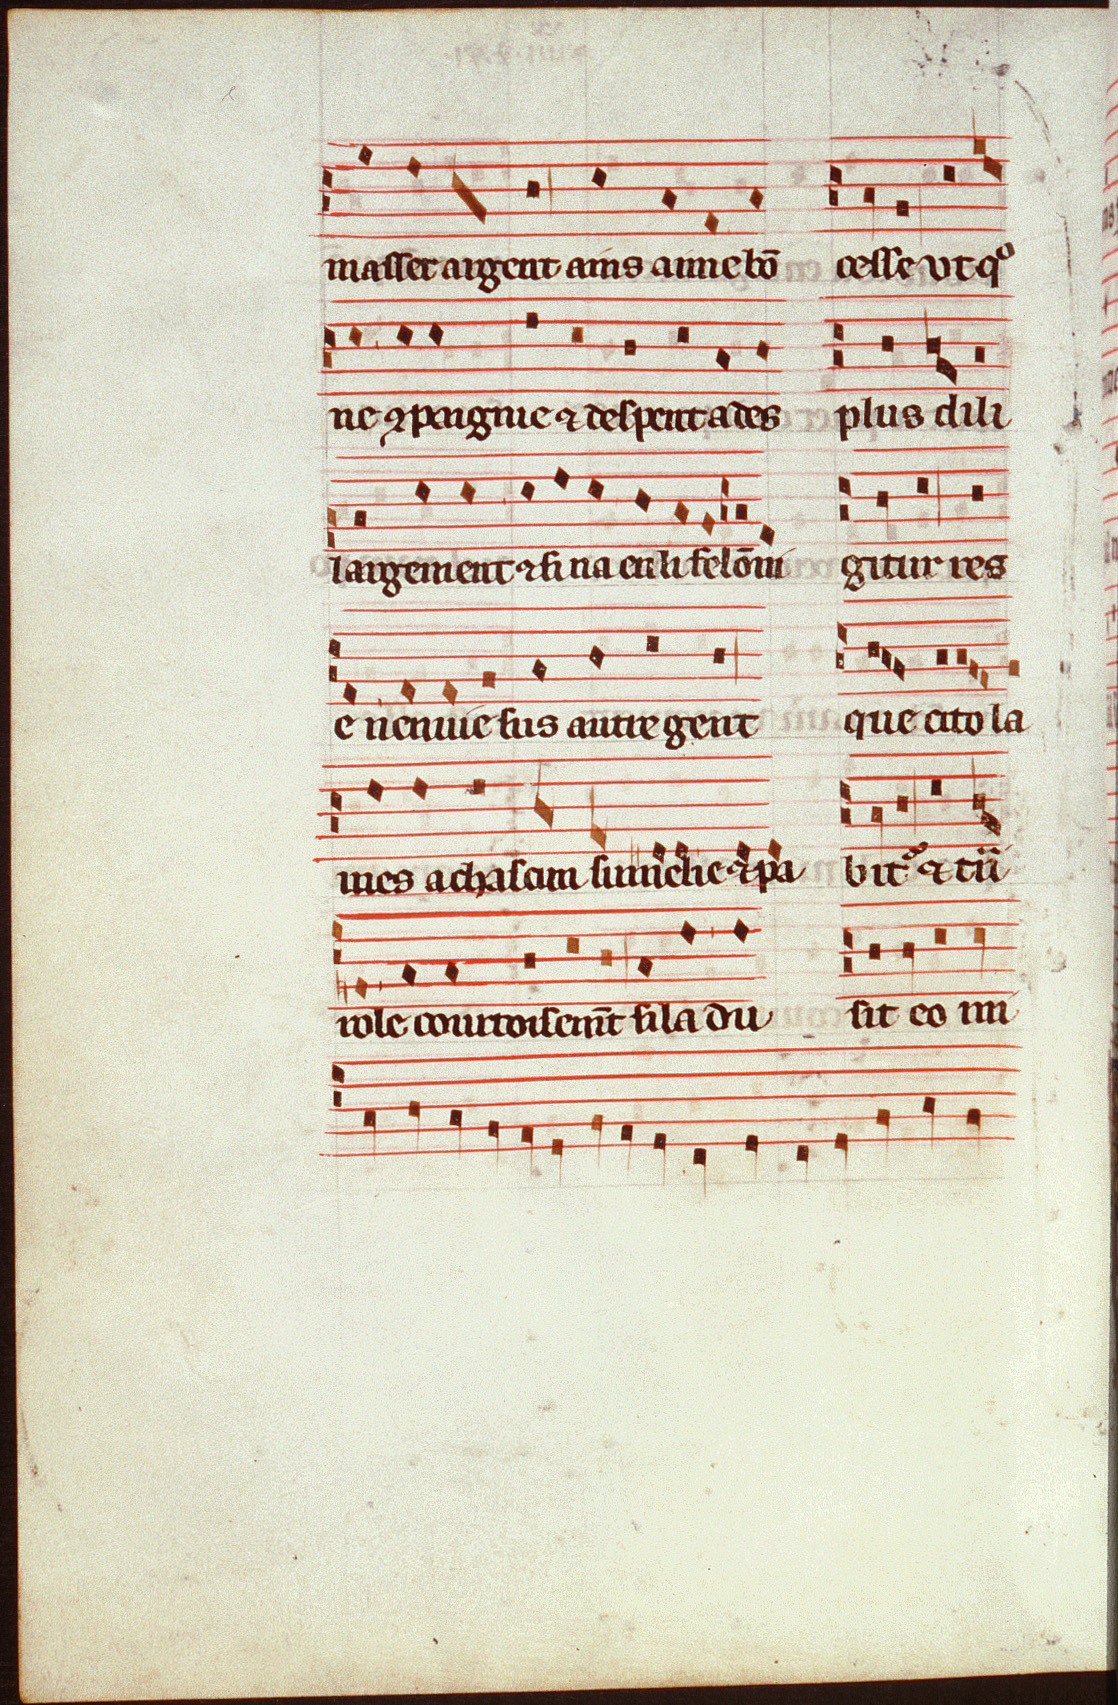 masser argent ains aime bō
ne ꝯpaignie ⁊ despent a des
largement ⁊ si na en li felōni
e nenuie sus autre gent
mes a chascun
role courtoisemēt si la du
cesse vt qͦ
plus dili
gitur res
que cito la
bit ⁊
sit eo mi